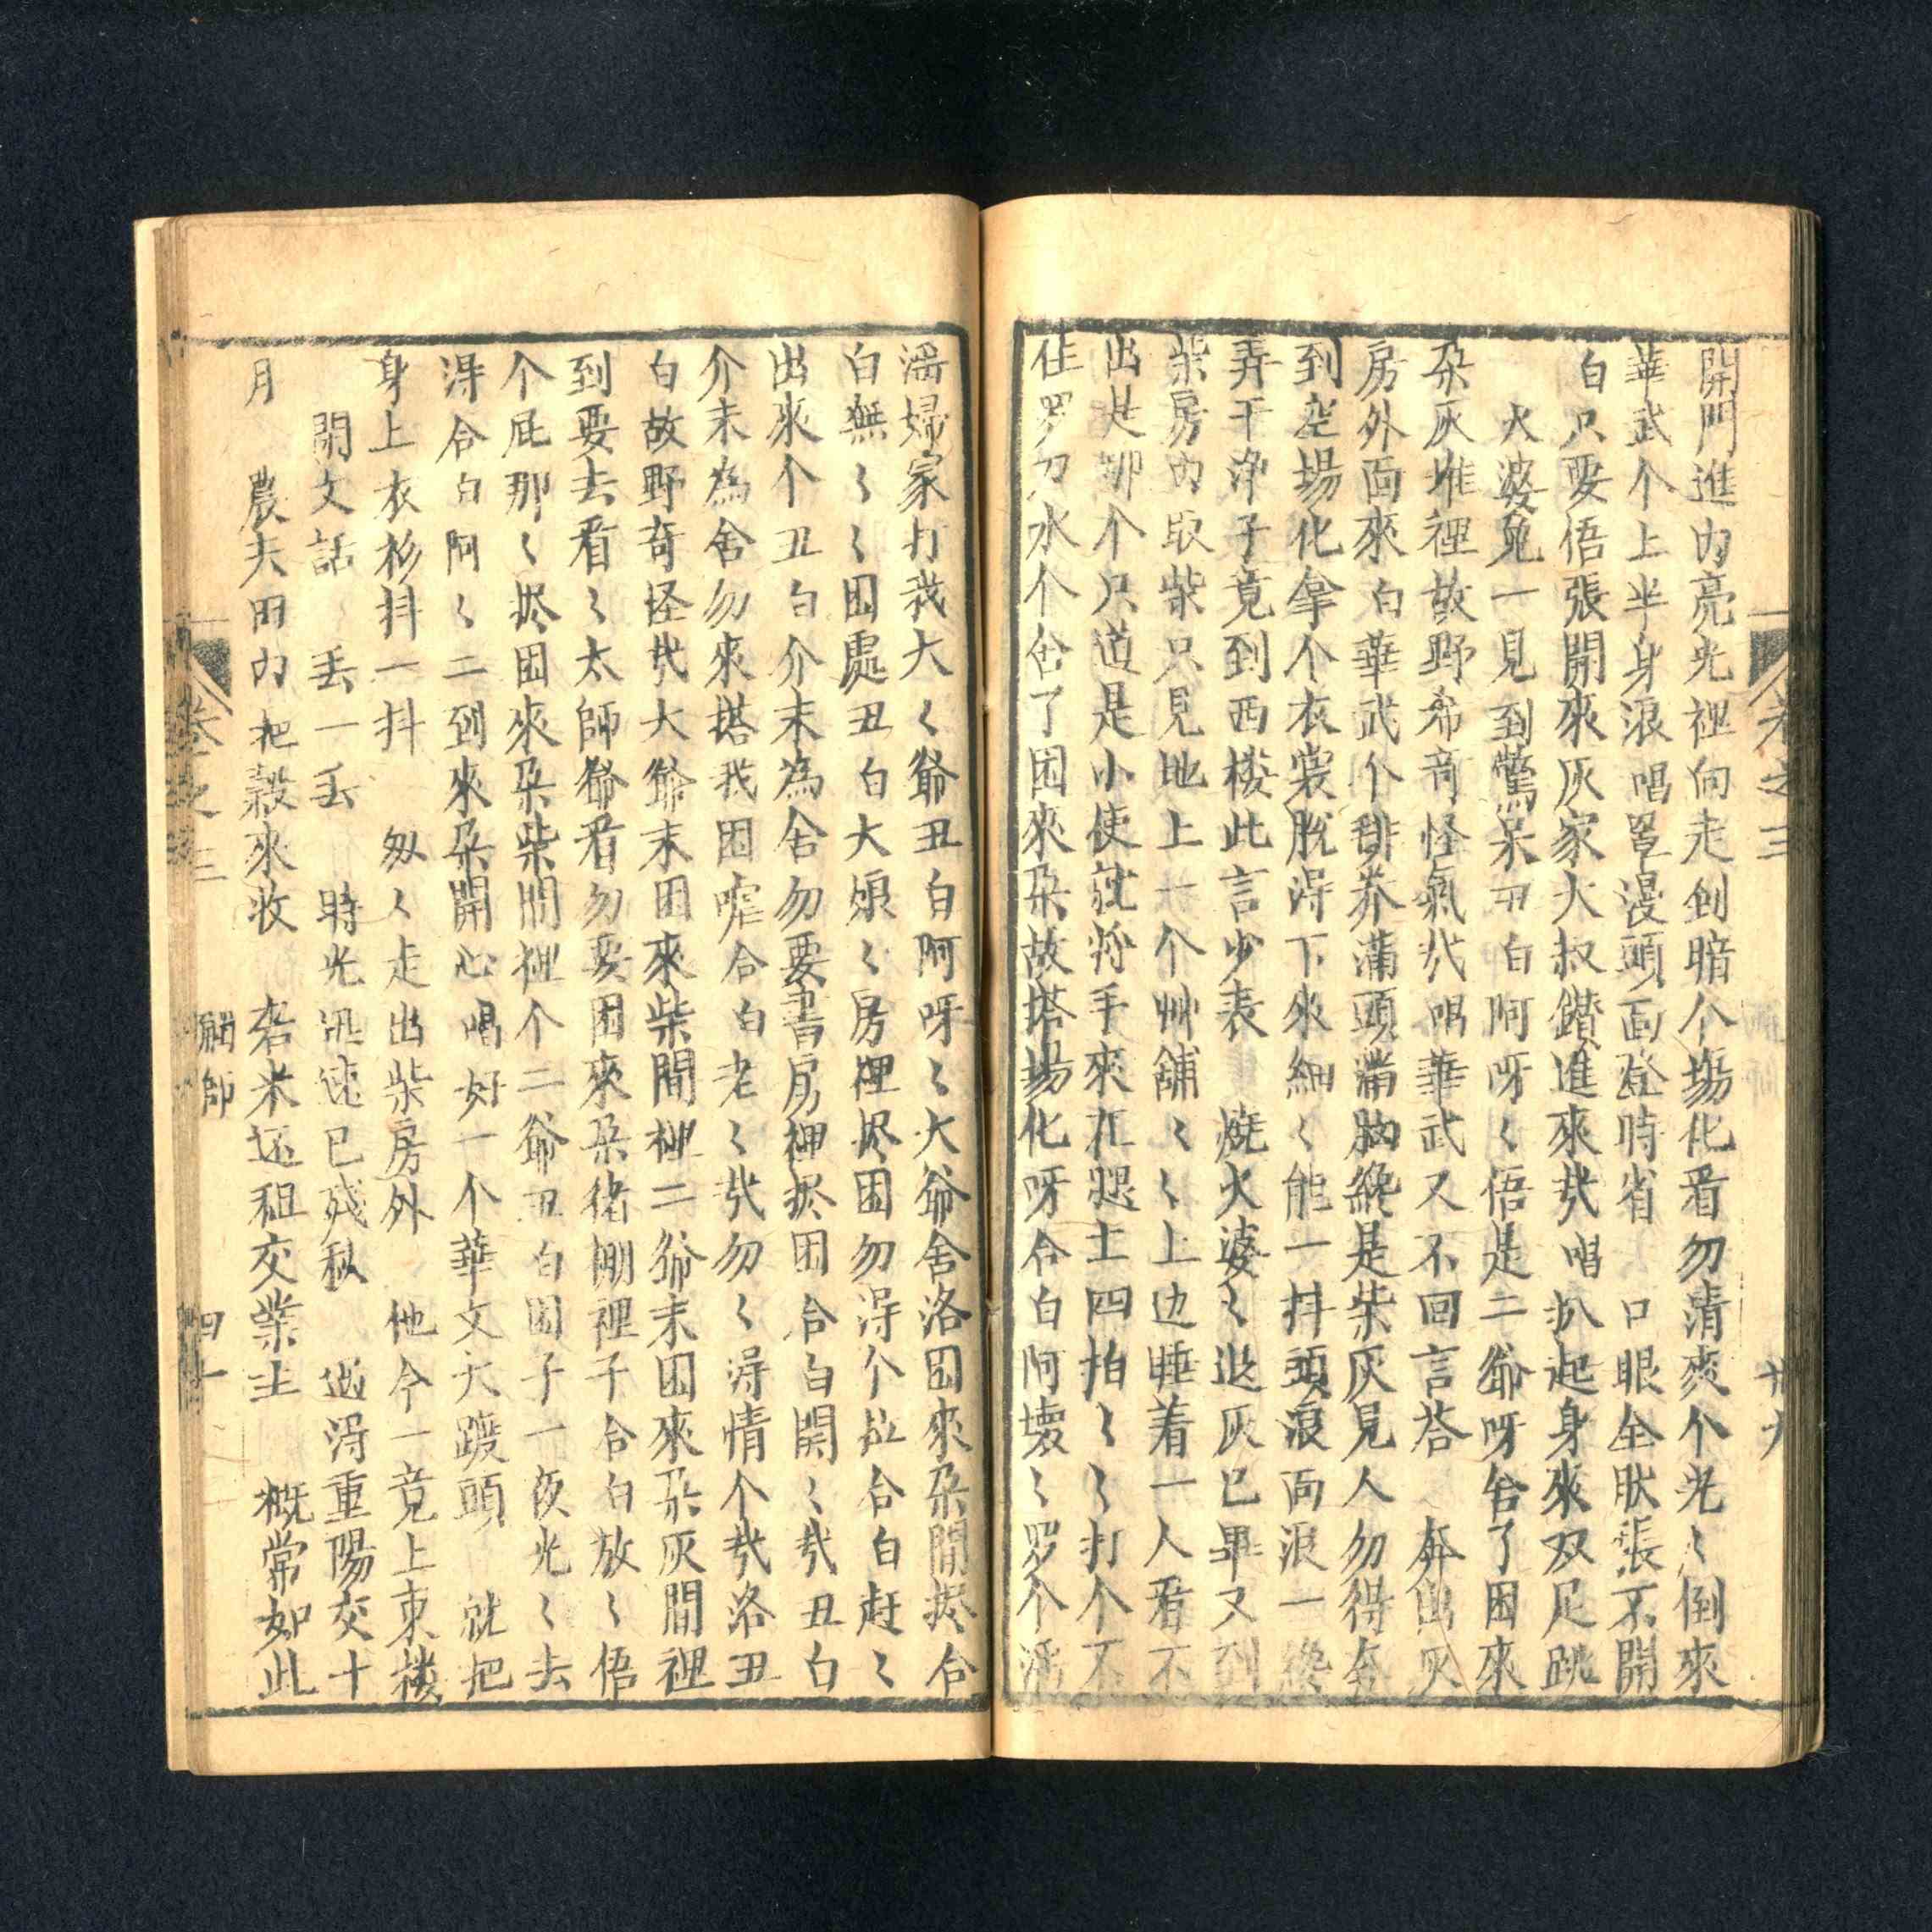 卷之三
開門進內亮光裡向走到暗个塲化看勿清爽个光〻倒來
華武个上半身浪 唱 罯漫頭面登時省 口眼全眹張不開
白只要悟張開來灰家大叔鑚進來哉唱 扒起身來双足跳
火婆兔一見到驚呆 丑白阿呀〻悟是二爺呀舍了困來
朶灰堆裡故野希奇怪氣哉 唱 華武又不回言荅 奔出灰
房外面來 白華武个餅养滿頭滿腦纔是柴灰見人勿得奔
到空場化拿个衣裳脫淂下來細〻能一抖頭浪面浪一絲
弄干净子竟到西樓此言少表 燒火婆〻迯灰已畢又到
柴房內取柴只見地上一个艸舖〻〻上边睡着一人看不
出是那个只道是小使就將手來在腿上四拍〻〻打个不
住 罗刀水个舍了困來朶故塔場化呀 合白阿壞〻罗个
滛婦家打我大〻爺 丑白阿呀〻大爺舍洛困來朶間 合
白無〻〻困處 丑白大娘〻房裡捄困勿淂个拉 合白赶〻
出來个 丑白介末為舍勿要書房裡捄困 合白開〻哉 丑白
介末為舍勿來搭我困 合白老〻哉勿〻淂情个哉洛 丑
白故野奇怪哉大爺末困來柴間裡二爺末困來朶灰間裡
到要去看〻太師爺看勿要困來朶猪棚裡子 合白放〻悟
个屁那〻捄困來朶柴間裡个二爺 丑白困子一夜光〻去
淂 合白阿〻二到來朶開心 唱 好一个華文大踱頭 就把
身上衣衫抖一抖 匆〻走出柴房外 他今一竟上東楼
閑文話〻丟一丟 時光迅速已殘秋 過淂重陽交十
月 農夫田內把穀來收 砻米还租交業主 概常如此
卷之三
四十